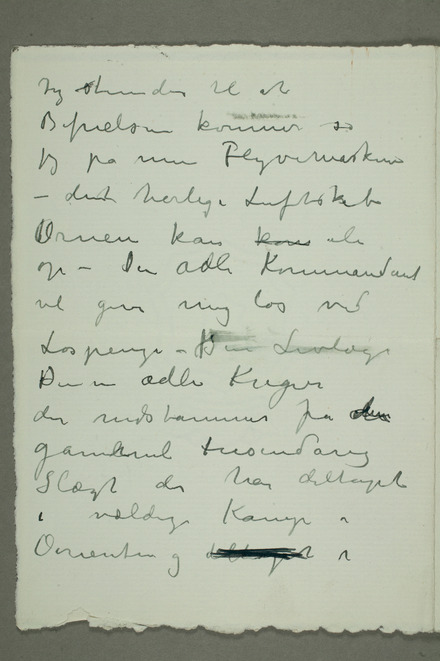 Jeg stunder til at
Befrielsen kommer så
jeg på min Flyvemaskine
– det herlige Luftskib
Ørnen kan ile
op – Den ædle Kommandant
vil give mig løs ved
Løspenge – Livlæge
Den ædle Kriger
der nedstammer fra
gammel tusindårig
Slægt der har deltaget
i vældige Kampe i
Orienten og i